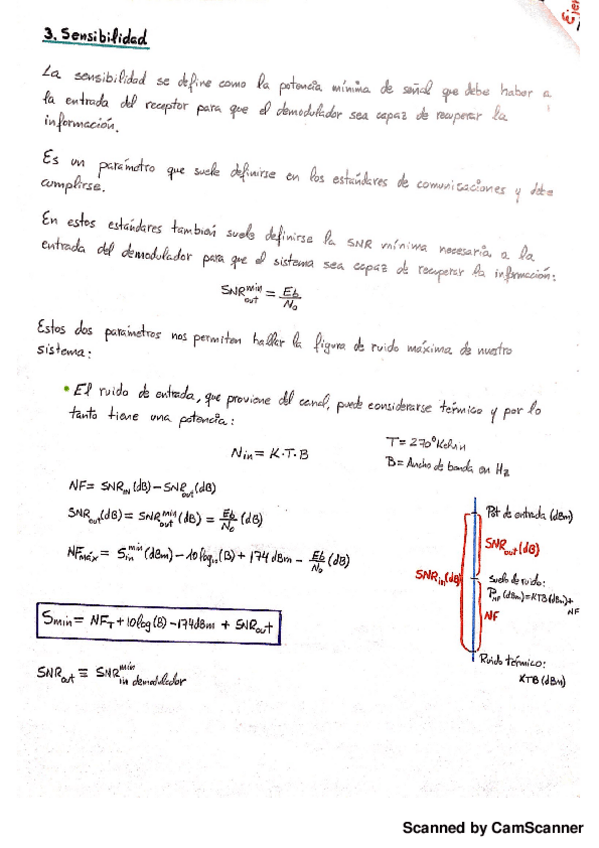 Ejer
3. Sensibilidad
La sensibilidad se define como la potencia mínima de señal que debe haber a
la entrada del receptor para que el demodulador sea capaz de recuperar la
información.
Es un parámetro que suele definirse en los estándares de comunicaciones y debe
cumplirse.
En estos estándares también suele definirse la SNR mínima necesaria a la
entrada del demodulador para que el sistema sea capaz de recuperar la información:
SNR_out^min = Eb/No
Estos dos parámetros nos permiten hallar la figura de ruido máxima de nuestro
sistema:
• El ruido de entrada, que proviene del canal, puede considerarse térmico y por lo
tanto tiene una potencia:
Nin = K·T·B
T = 270° Kelvin
B = Ancho de banda en Hz
NF = SNR_IN (dB) - SNR_out (dB)
SNR_out (dB) = SNR_out^min (dB) = Eb/No (dB)
NFmáx = S_in^min (dBm) - 10 log₁₀ (B) + 174 dBm - Eb/No (dB)
Smin = NF_T + 10 log (B) - 174 dBm + SNR_out
SNR_out ≡ SNR_in demodulador^min
Pot de entrada (dBm)
SNR_out (dB)
SNR_in (dB)
suelo de ruido:
P_NF (dBm) = KTB (dBm) +
NF
NF
Ruido térmico:
KTB (dBm)
Scanned by CamScanner